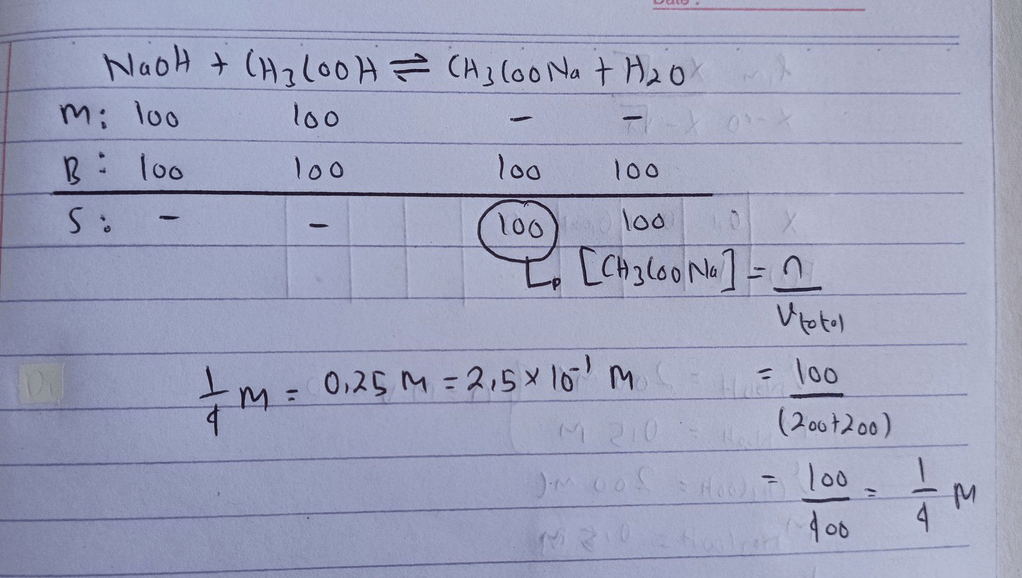 Date :
NaOH + CH3COOH ⇌ CH3COONa + H2O
M: 100 100 - -
B: 100 100 100 100
S: - - 100 100
[CH3COONa] = n / Vtotal
1/4 M = 0,25 M = 2,5 × 10^-1 M = 100 / (200+200)
= 100 / 400 = 1/4 M